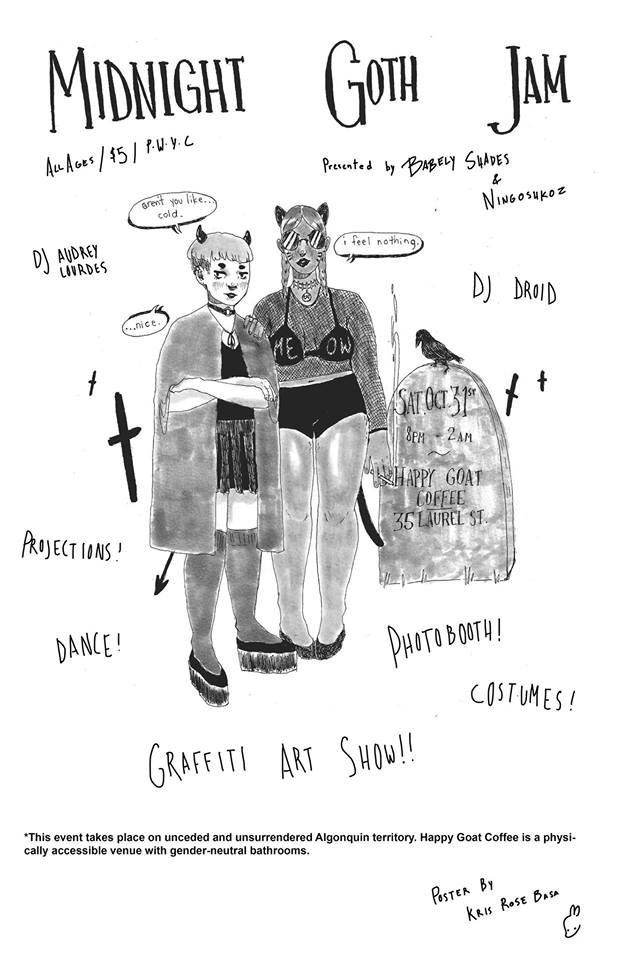 MIDNIGHT GOTH JAM
ALL AGES / $5 / P.W.Y.C
Presented by BABELY SHADES
& NINGOSHKOZ
aren't you like...
cold.
i feel nothing.
...nice.
DJ AUDREY
LOURDES
DJ DROID
ME OW
SAT. OCT. 31ST
8PM - 2AM
~
HAPPY GOAT
COFFEE
35 LAUREL ST.
PROJECTIONS!
DANCE!
PHOTOBOOTH!
COSTUMES!
GRAFFITI ART SHOW!!
*This event takes place on unceded and unsurrendered Algonquin territory. Happy Goat Coffee is a physi-
cally accessible venue with gender-neutral bathrooms.
POSTER BY
KRIS ROSE BASA